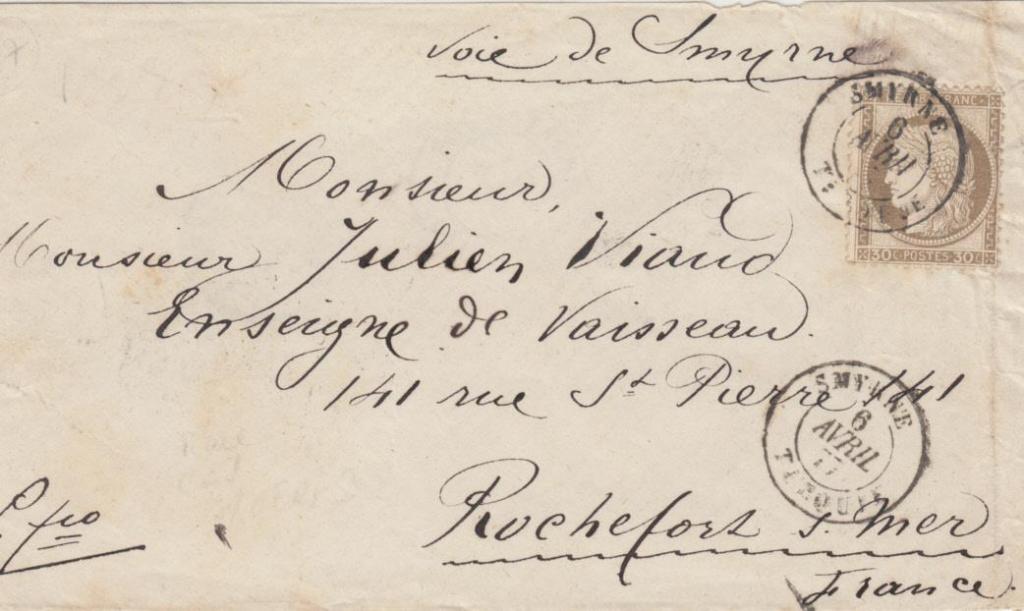 voie de Smyrne
SMYRNE
6
AVRIL
FRANC
30C·POSTES·30C
Monsieur,
Monsieur Julien Viaud
Enseigne de Vaisseau.
141 rue St Pierre 141
SMYRNE
6
AVRIL
77
TURQUIE
Rochefort s. mer
France.